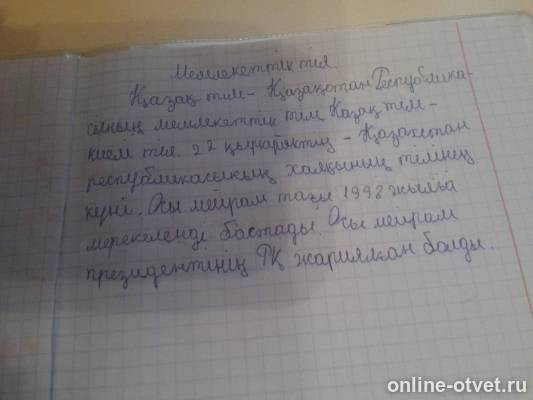 Мемлекеттік тіл
Қазақ тілі - Қазақстан Республика-
сының мемлекеттік тілі. Қазақ тілі -
тіл. 22 қыркүйектің - Қазақстан
республикасының халқының тілінің
күні. Осы мейрам тағы 1998 жылға
мерекеленді бастады. Осы мейрам
президентінің ҚР жариялған болды.
online-otvet.ru